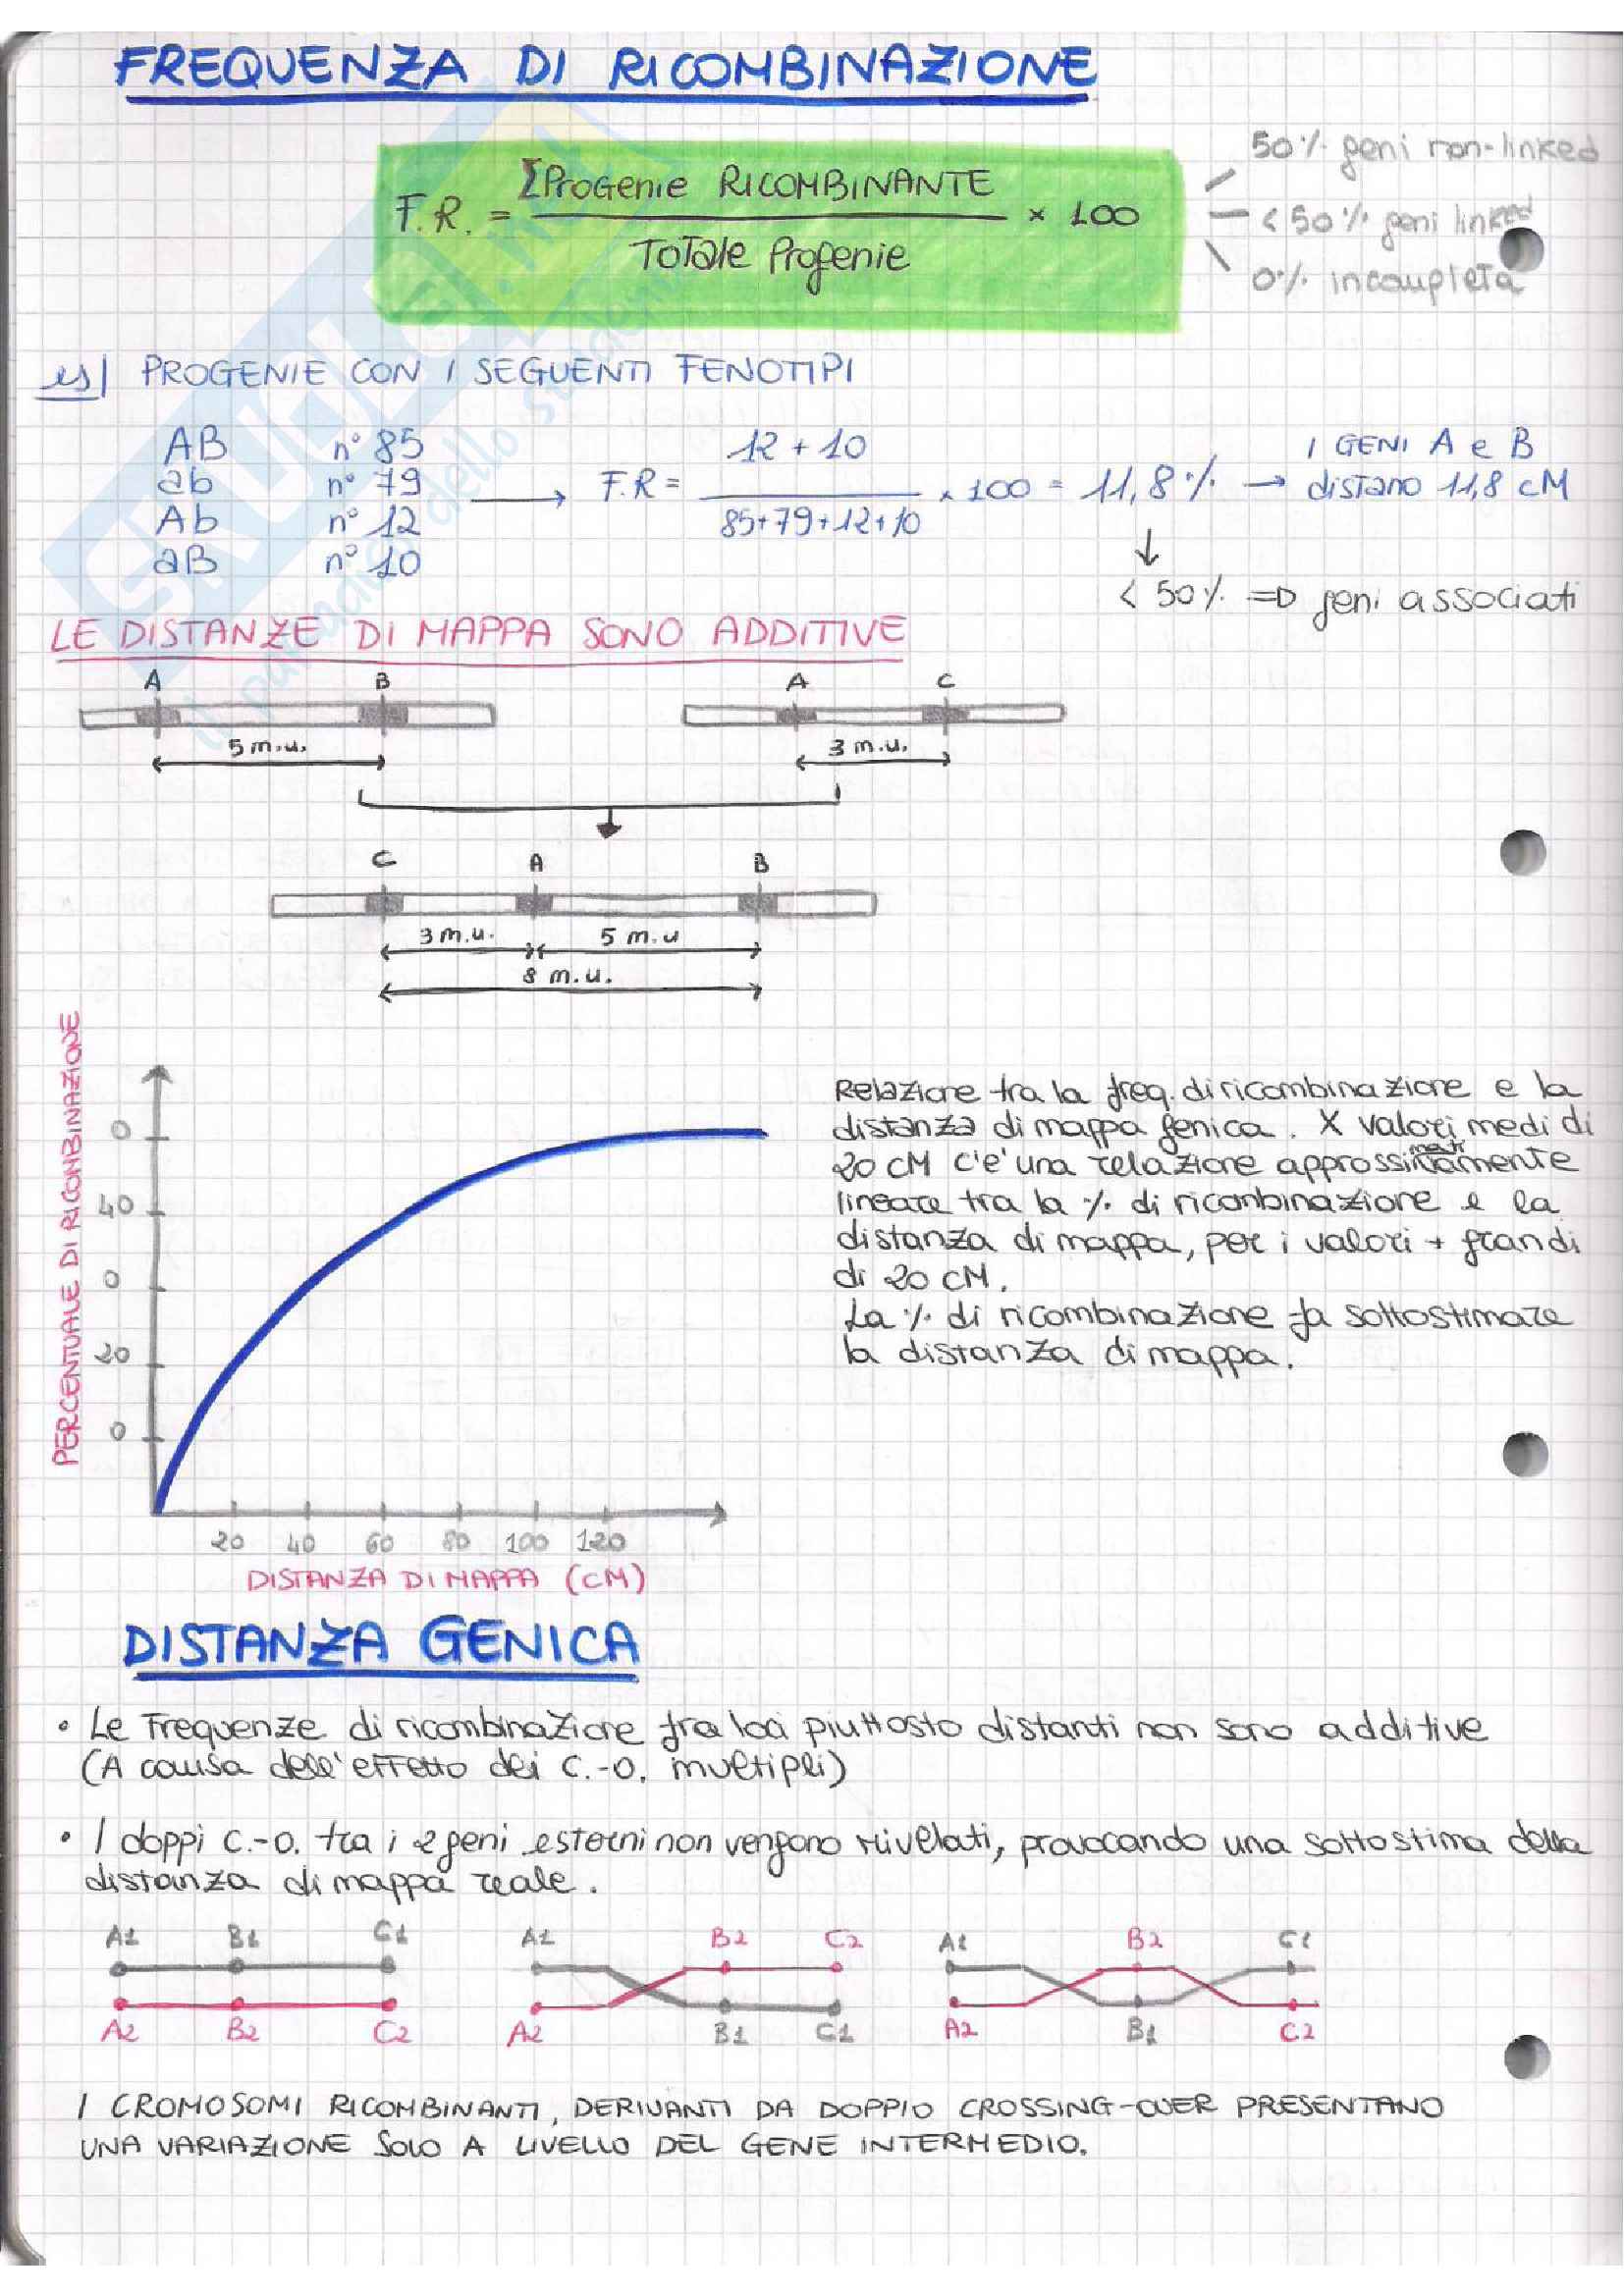 FREQUENZA DI RICOMBINAZIONE
F.R. = ΣProgenie RICOMBINANTE / Totale Progenie × 100
50% geni non-linked
<50% geni linked
0% incompleta
es) PROGENIE CON I SEGUENTI FENOTIPI
AB n° 85
ab n° 79
Ab n° 12
aB n° 10
F.R = 12 + 10 / 85+79+12+10 × 100 = 11,8% → I GENI A e B
distano 11,8 cM
< 50% => geni associati
LE DISTANZE DI MAPPA SONO ADDITIVE
A B A C
5 m.u. 3 m.u.
C A B
3 m.u. 5 m.u
8 m.u.
PERCENTUALE DI RICOMBINAZIONE
0
40
0
20
0
20 40 60 80 100 120
DISTANZA DI MAPPA (CM)
Relazione tra la freq. di ricombinazione e la
distanza di mappa genica. X valori medi di
20 cM c'e' una relazione approssimativamente
lineare tra la % di ricombinazione e la
distanza di mappa, per i valori + grandi
di 20 cM.
La % di ricombinazione fa sottostimare
la distanza di mappa.
DISTANZA GENICA
• Le Frequenze di ricombinazione fra loci piuttosto distanti non sono additive
(A causa dell'effetto dei C.-O. multipli)
• I doppi C.-O. tra i 2 geni esterni non vengono rivelati, provocando una sottostima della
distanza di mappa reale.
A1 B1 C1 A1 B2 C2 A1 B2 C1
A2 B2 C2 A2 B1 C1 A2 B1 C2
I CROMOSOMI RICOMBINANTI, DERIVANTI DA DOPPIO CROSSING-OVER PRESENTANO
UNA VARIAZIONE SOLO A LIVELLO DEL GENE INTERMEDIO.